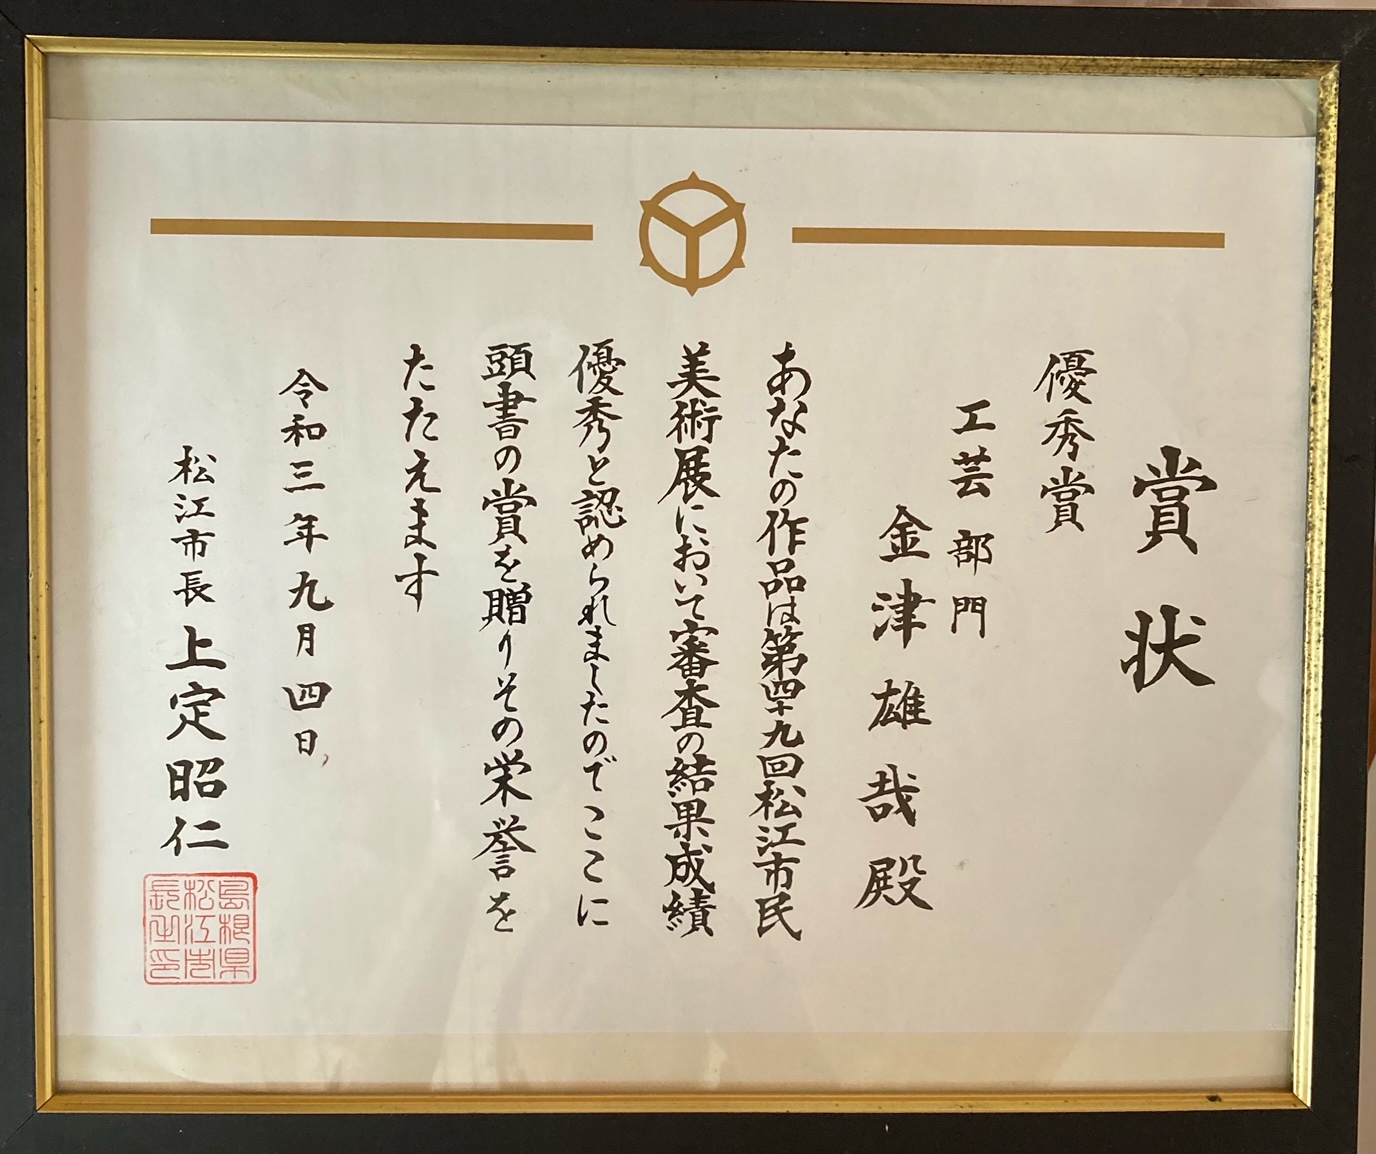 賞状
優秀賞
工芸部門
金津雄哉殿
あなたの作品は第四十九回松江市民
美術展において審査の結果成績
優秀と認められましたのでここに
頭書の賞を贈りその栄誉を
たたえます
令和三年九月四日
松江市長 上定昭仁
島根県
松江市
長之印